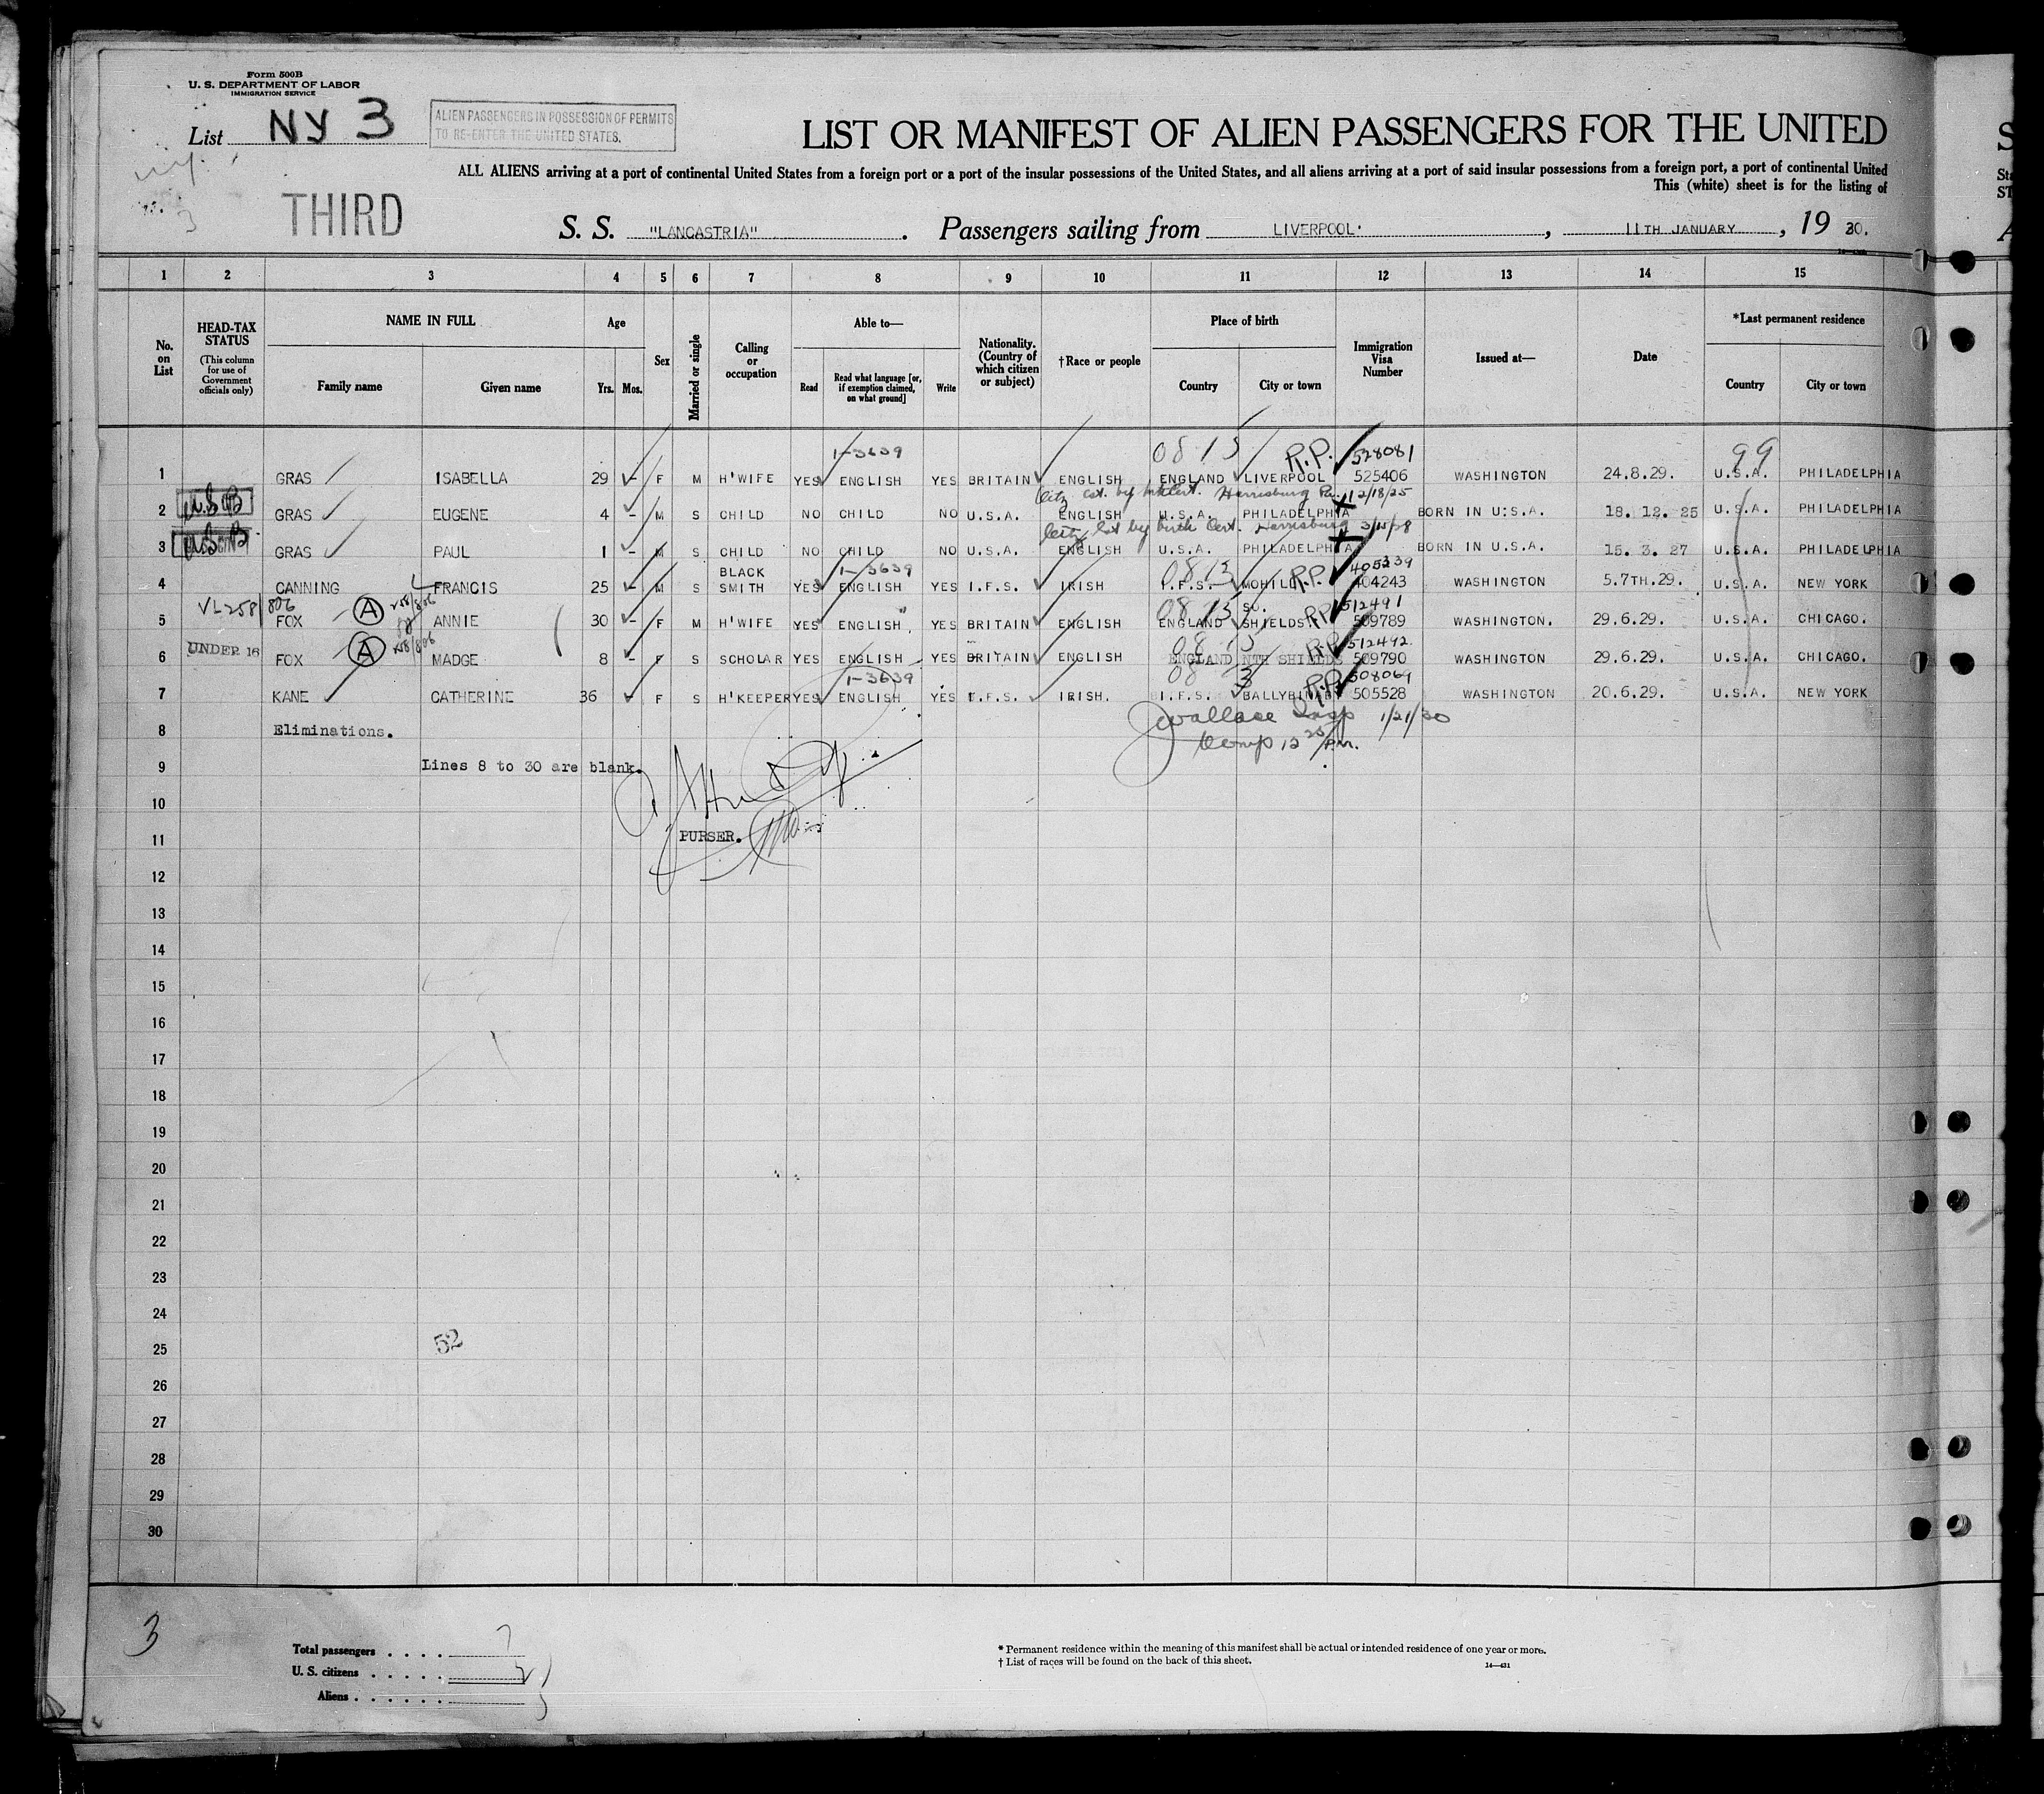 Form 500B
U. S. DEPARTMENT OF LABOR
IMMIGRATION SERVICE
List NY 3
ALIEN PASSENGERS IN POSSESSION OF PERMITS
TO RE-ENTER THE UNITED STATES.
LIST OR MANIFEST OF ALIEN PASSENGERS FOR THE UNITED
ALL ALIENS arriving at a port of continental United States from a foreign port or a port of the insular possessions of the United States, and all aliens arriving at a port of said insular possessions from a foreign port, a port of continental United
This (white) sheet is for the listing of
THIRD
3
S. S. "LANCASTRIA". Passengers sailing from LIVERPOOL. , 11TH JANUARY , 19 30.
1 2 3 4 5 6 7 8 9 10 11 12 13 14 15
No. on List
HEAD-TAX STATUS (This column for use of Government officials only)
NAME IN FULL
Family name Given name
Age
Yrs. Mos.
Sex
Married or single
Calling or occupation
Able to—
Read Read what language [or, if exemption claimed, on what ground] Write
Nationality. (Country of which citizen or subject)
†Race or people
Place of birth
Country City or town
Immigration Visa Number
Issued at—
Date
*Last permanent residence
Country City or town
1-3639 0813 R.P. 528081 99
1 GRAS ISABELLA 29 - F M H'WIFE YES ENGLISH YES BRITAIN ENGLISH ENGLAND LIVERPOOL 525406 WASHINGTON 24.8.29. U.S.A. PHILADELPHIA
Harrisburg Pa. 12/18/25
2 U.S.B GRAS EUGENE 4 - M S CHILD NO CHILD NO U.S.A. ENGLISH U.S.A. PHILADELPHIA BORN IN U.S.A. 18. 12. 25 U.S.A. PHILADELPHIA
by birth Cert. Harrisburg 3/15/28
3 U.S.B GRAS PAUL 1 - M S CHILD NO CHILD NO U.S.A. ENGLISH U.S.A. PHILADELPHIA BORN IN U.S.A. 15. 3. 27 U.S.A. PHILADELPHIA
1-3639 0813 R.P. 405239
4 CANNING FRANCIS 25 - M S BLACK SMITH YES ENGLISH YES I.F.S. IRISH I.F.S. MOHILL 404243 WASHINGTON 5.7TH.29. U.S.A. NEW YORK
VL258/806 0815 R.P. 512491
5 FOX A ANNIE 30 - F M H'WIFE YES ENGLISH YES BRITAIN ENGLISH ENGLAND SO. SHIELDS 509789 WASHINGTON. 29.6.29. U.S.A. CHICAGO.
0815 R.P. 512492
6 UNDER 16 FOX A MADGE 8 - F S SCHOLAR YES ENGLISH YES BRITAIN ENGLISH ENGLAND NTH SHIELDS 509790 WASHINGTON 29.6.29. U.S.A. CHICAGO.
1-3639 08 3 R.P. 508069
7 KANE CATHERINE 36 - F S H'KEEPER YES ENGLISH YES I.F.S. IRISH. I.F.S. 505528 WASHINGTON 20.6.29. U.S.A. NEW YORK
8 Eliminations. Wallace Insp 1/21/30
9 Lines 8 to 30 are blank.
10
11 PURSER.
12
13
14
15
16
17
18
19
20
21
22
23
24
25 52
26
27
28
29
30
3
Total passengers . . . . 7
U. S. citizens . . . . . 2
Aliens . . . . . . 5
* Permanent residence within the meaning of this manifest shall be actual or intended residence of one year or more.
† List of races will be found on the back of this sheet.